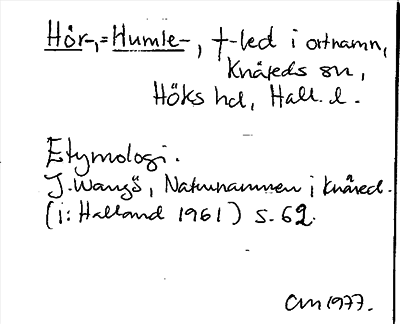 Hör-, = Humle-, †-led i ortnamn,
Knäreds sn,
Höks hd, Hall. l.
Etymologi.
J. Wangö, Naturnamnen i Knäred.
(i: Halland 1961) s. 62.
CM 1977.